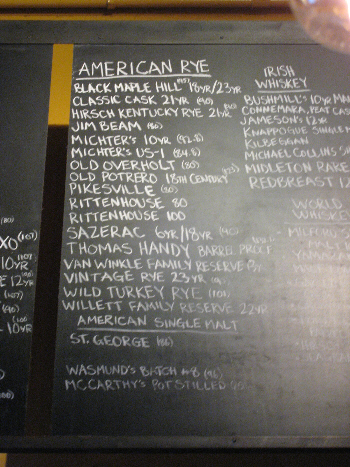 AMERICAN RYE
BLACK MAPLE HILL 18YR/23YR
CLASSIC CASK 21YR (90)
HIRSCH KENTUCKY RYE 21YR
JIM BEAM (80)
MICHTER'S 10YR (92.8)
MICHTER'S US-1 (84.8)
OLD OVERHOLT (80)
OLD POTRERO 18TH CENTURY
PIKESVILLE (80)
RITTENHOUSE 80
RITTENHOUSE 100
SAZERAC 6YR/18YR (90)
THOMAS HANDY BARREL PROOF
VAN WINKLE FAMILY RESERVE 13YR
VINTAGE RYE 23YR
WILD TURKEY RYE (101)
WILLETT FAMILY RESERVE 22YR
AMERICAN SINGLE MALT
ST. GEORGE (86)
WASMUND'S BATCH #8 (96)
MCCARTHY'S POT STILLED
IRISH
WHISKEY
BUSHMILL'S 10YR
CONNEMARA, PEAT CAS
JAMESON'S 12YR
KNAPPOGUE SINGLE M
KILBEGGAN
MICHAEL COLLINS
MIDLETON RARE
REDBREAST 12
WORLD
WHISKEY
(80)
XO (107)
10YR
E 12YR
(107)
(90)
10YR